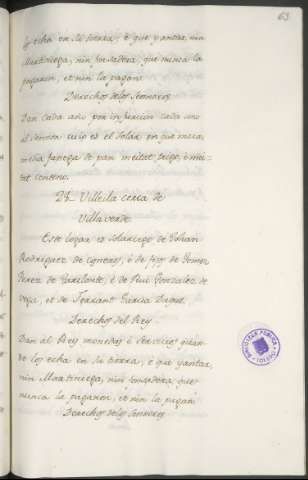 63
los echa en su tierra, è que yantar, nin
Martiniega, nin fonsadera, que nunca la
pagaron, et nin la pagan.
Derechos delos Sennores
Dan cada año por infurcion cada uno
al Sennor cuio es el Solar en que mora,
media fanega de pan meitat trigo, è mei-
tat centeno.
Villeila cerca de
Villaverde
Este logar es solariego de Johan
Rodriguez de Cisneros, è de fijos de Gomez
Perez de è de Rui Gonzalez de
Vega, et de Ferrant Garcia Duque.
Derechos del Rey
Dan al Rey monedas è servicios quan-
do los echa en su tierra, è que yantar,
nin Martiniega, nin fonsadera, que
nunca la pagaron, et nin la pagan
Derechos delos Sennores
BIBLIOTECA PUBLICA
TOLEDO